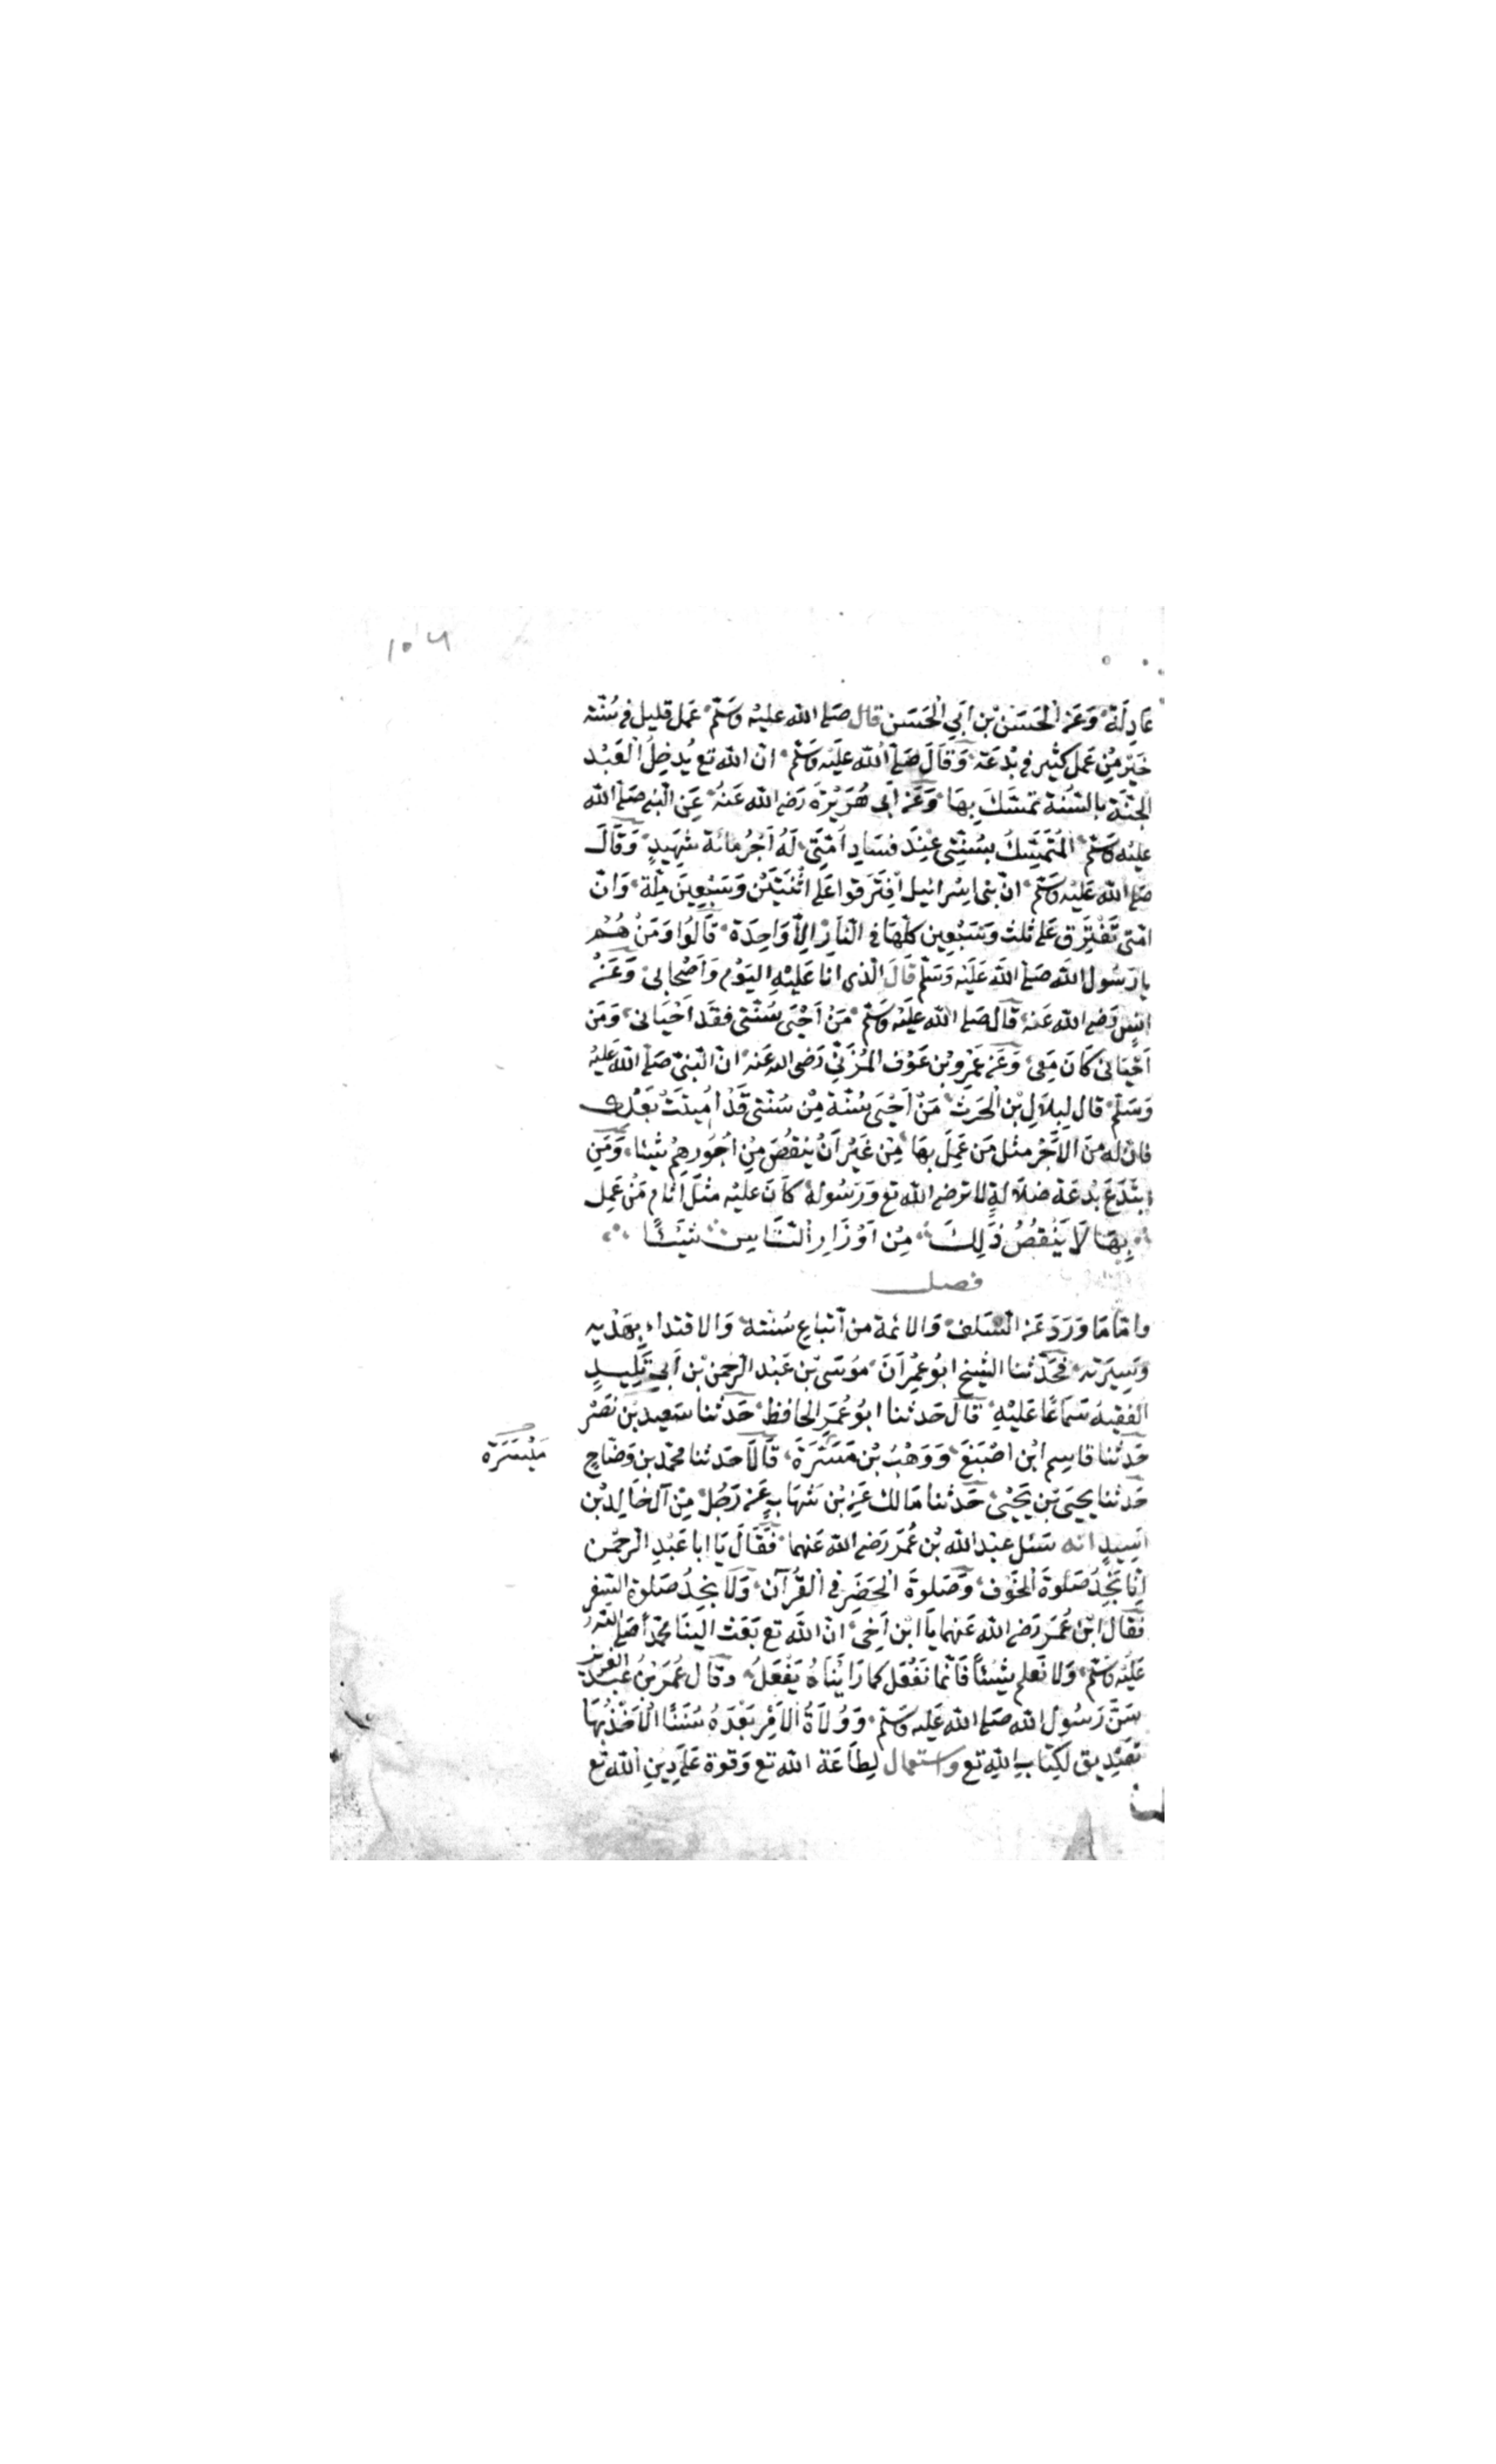 ١٠٦
عَادِلَة وَعَنِ الْحَسَنِ بْنِ أَبِي الْحَسَنِ قال صَلى الله عليه وسَلّم عَمل قليل في سُنّة
خَيْر مِنْ عَمَل كثير في بْدعَة وَقَالَ صَلى الله عليه وسَلّم ان الله تع يُدخِلُ الْعَبْد
الجنّة بالسُّنة تمسّكَ بِهَا وَعَنْ أبى هُرَيْرَة رَضى الله عَنْهُ عَنِ النبى صَلى الله
عليه وسلم الْمُتَمَسِّكُ بسُنّتِى عِنْدَ فسَادِ اُمّتِى لَهُ اَجْرُ مائة شهِيدٍ وَقَالَ
صَلى الله عَليْه وسَلّم انّ بنى اسْرائيل افتَرقوا عَلى اثْنَتَيْن وَسَبْعِينَ مِلّة وَانّ
امّتى تَفْتَرِق عَلى ثلث وَسَبْعِين كلّهَا في النّارِ الّا وَاحِدَة قَالُوا وَمَنْ هُمْ
يا رَسُول الله صَلى الله عَلَيْه وَسَلّم قَالَ الّذى انَا عَليْهِ اليَوْم وَاَصْحَابى وَعَنْ
انَسٍ رَضى الله عَنه قال صَلى الله عَلَيْه وسَلّم مَنْ اَحْيَى سُنّتى فقَد اَحْيَانى وَمَن
اَحْيَانى كَانَ مَعِى وَعَنْ عَمْرِو بْن عَوْف المُزَنِّي رَضى الله عَنه انّ النّبىّ صَلى الله عَليْهِ
وَسَلّم قال لِبِلَالِ بْن الحَرَث مَنْ اَحْيَى سُنّة مِنْ سُنّتى قَدْ اُمِيتَتْ بَعْدِى
فانّ له مِنَ الاَجْر مثل مَن عَمِلَ بِهَا مِنْ غَيْر اَنْ يَنْقُصَ مِنْ اُجُورِهِمْ شَيْئا وَمَن
ابتَدَعَ بدْعَة ضلَالَةٍ لا ترضى الله تع وَرَسُوله كَانَ عَليْه مثْلَ اثَام مَنْ عَمِل
بِهَا لَا يَنْقُصُ ذَلِكَ مِنْ اَوْزَارِ النَّاسِ شَيْئًا
فصل
وامّا مَا وَرَدَ عَن السَّلف وَالائمة من اتّبَاعِ سُنّته وَالاقتداء بِهَدْيِه
وَسِيرَته فَحَدّثنا الشيخ ابُو عِمْرَانَ مُوسَى بْن عَبْد الرّحْمن بْن اَبِي تَلِيدٍ
الفقيهُ سَمَاعًا عَليْهِ قَالَ حَدثنا ابُو عُمَر الحافظ حَدثنا سَعِيد بن نَصْر
حَدّثنا قاسِم ابن اصْبَغَ وَوَهْبُ بْن مَسَرَّةَ قَالَا حَدثنا محمّد بن وَضّاح
مَيْسَرَة
حَدثنا يحيَى بْن يَحْيَى حَدثنا مَالك عَنِ بْن شِهَابٍ عَنْ رَجُل مِنْ آل خَالِد بْن
اَسِيدٍ انّه سَئل عبد الله بْن عُمَر رَضى الله عَنهما فَقَالَ يَا ابا عَبْدِ الرّحمن
اِنّا نَجِدُ صَلوةَ الخَوْف وَصَلوةَ الحَضَر في الْقُرآن وَلَا نجِدُ صَلوةَ السّفر
فَقَالَ ابْن عُمَر رَضى الله عَنهما يَا ابْن اَخِى انّ الله تع بَعَث الينَا محمّدًا صَلى الله
عَليْه وسَلّم وَلا نَعلم شيْئاً فَانّما نَفْعَل كما رَاَيْنَاهُ يَفْعَلُ وقال عُمَر بْنُ عَبْد العزيز
سَنّ رَسُول الله صَلى الله عَليه وسَلّم وَوُلَاةُ الاَمْر بَعْدَهُ سُنَنًا الاَخْذُ بِهَا
تَصْدِيق لكِتَابِ اللهِ تع واستعمال لِطَاعَة الله تع وَقوة عَلَى دِينِ الله تع